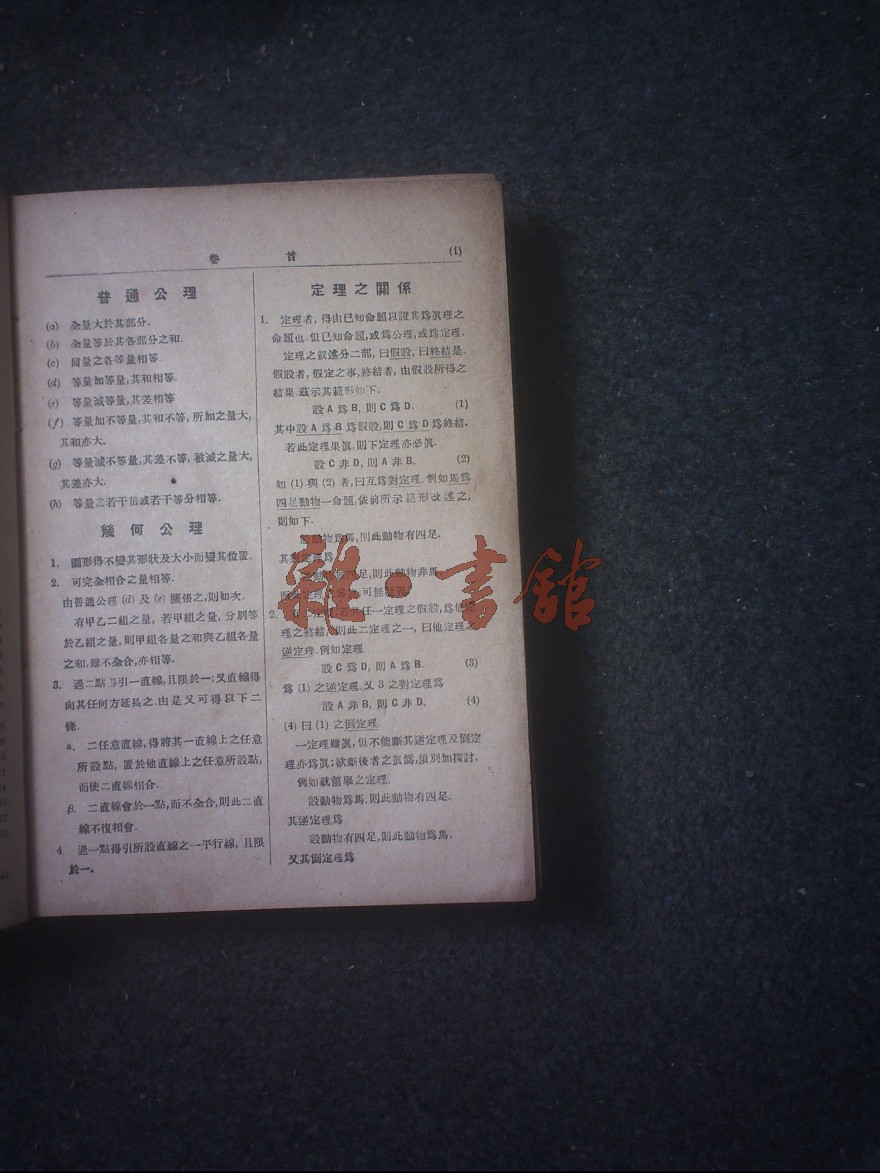 卷首
(1)
普通公理
(a) 全量大於其部分.
(b) 全量等於其各部分之和.
(c) 同量之各等量相等.
(d) 等量加等量,其和相等.
(e) 等量減等量,其差相等
(f) 等量加不等量,其和不等,所加之量大,
其和亦大.
(g) 等量減不等量,其差不等,被減之量大,
其差亦大.
(h) 等量之若干倍或若干等分相等.
幾何公理
1. 圖形得不變其形狀及大小而變其位置.
2. 可完全相合之量相等.
由普通公理 (d) 及 (e) 擴張之,則如次.
有甲乙二組之量,若甲組之量,分別等
於乙組之量,則甲組各量之和與乙組各量
之和,雖不全合,亦相等.
3. 過二點得引一直線,且限於一;又直線得
向其任何方延長之.由是又可得以下二
條.
α. 二任意直線,得將其一直線上之任意
所設點,置於他直線上之任意所設點,
而使二直線相合.
β. 二直線會於一點,而不全合,則此二直
線不復相會.
4. 過一點得引所設直線之一平行線,且限
於一.
定理之關係
1. 定理者,得由已知命題以證其爲眞理之
命題也.但已知命題,或爲公理,或爲定理.
定理之叙述分二部,曰假設,曰終結是.
假設者,假定之事,終結者,由假設所得之
結果.茲示其範形如下.
設 A 爲 B, 則 C 爲 D. (1)
其中設 A 爲 B 爲假設,則 C 爲 D 爲終結.
若此定理果眞,則下定理亦必眞.
設 C 非 D, 則 A 非 B. (2)
如 (1) 與 (2) 者,曰互爲對定理.例如馬爲
四足動物一命題,依前所示範形改述之,
則如下.
設動物爲馬,則此動物有四足.
其對定理爲
四足,則此動物非馬
可無
雜·書館
2. 定理,若其任一定理之假設,爲他定
理之終結,則此二定理之一,曰他定理之
逆定理.例如定理
設 C 爲 D, 則 A 爲 B. (3)
爲 (1) 之逆定理.又 3 之對定理爲
設 A 非 B, 則 C 非 D. (4)
(4) 曰 (1) 之倒定理.
一定理雖眞,但不能斷其逆定理及倒定
理亦爲眞;欲斷後者之眞僞,須別加探討.
例如就前舉之定理,
設動物爲馬,則此動物有四足.
其逆定理爲
設動物有四足,則此動物爲馬.
又其倒定理爲